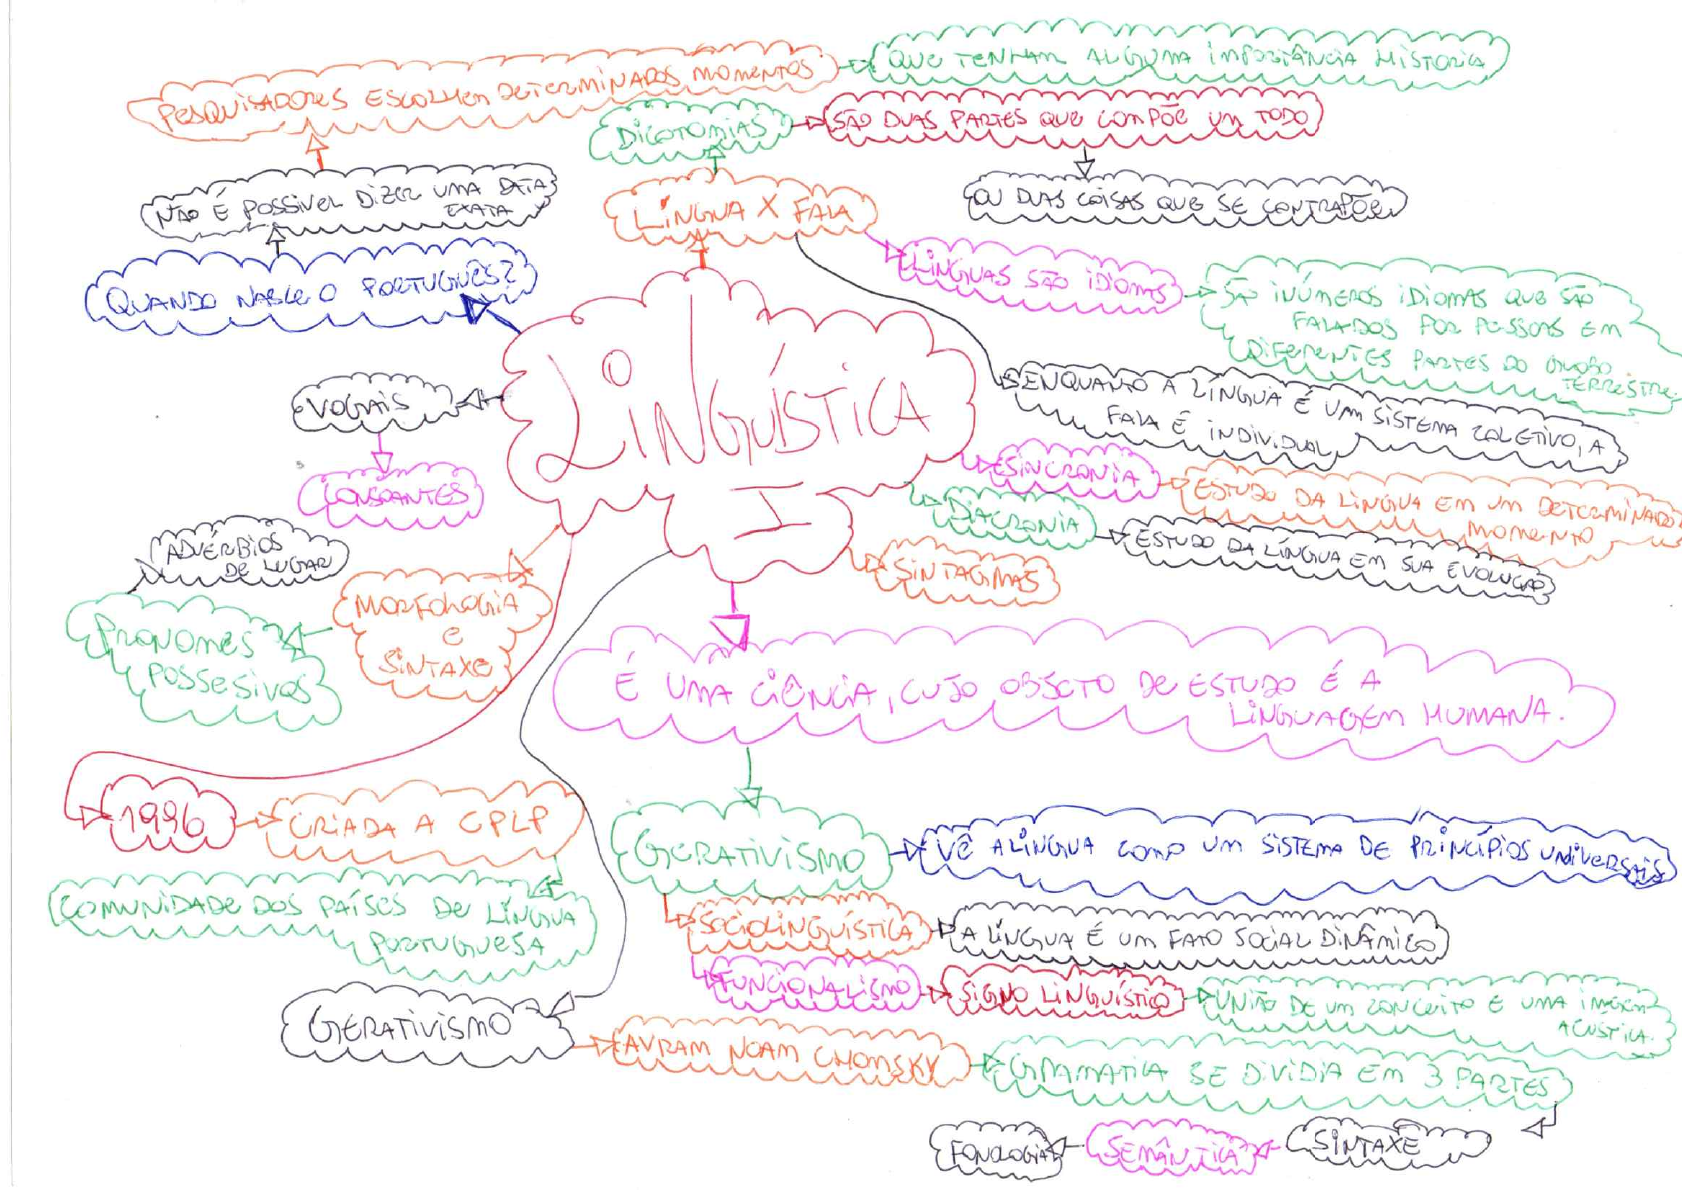 PESQUISADORES ESCOLHEM DETERMINADOS MOMENTOS
QUE TENHAM ALGUMA IMPORTÂNCIA HISTORICA
DICOTOMIAS
SÃO DUAS PARTES QUE COMPÕE UM TODO
NÃO É POSSIVEL DIZER UMA DATA
EXATA
LÍNGUA X FALA
OU DUAS COISAS QUE SE CONTRAPÕE
QUANDO NASCE O PORTUGUÊS?
LINGUAS SÃO IDIOMAS
SÃO INÚMEROS IDIOMAS QUE SÃO
FALADOS POR PESSOAS EM
DIFERENTES PARTES DO GLOBO
TERRESTRE.
VOGAIS
LINGUÍSTICA
I
ENQUANTO A LÍNGUA É UM SISTEMA COLETIVO, A
FALA É INDIVIDUAL
CONSOANTES
SINCRONIA
ESTUDO DA LINGUA EM UM DETERMINADO
MOMENTO
DIACRONIA
ESTUDO DA LÍNGUA EM SUA EVOLUÇÃO
ADVÉRBIOS
DE LUGAR
SINTAGMAS
MORFOLOGIA
E
SINTAXE
PRONOMES
POSSESIVOS
É UMA CIÊNCIA, CUJO OBJETO DE ESTUDO É A
LINGUAGEM HUMANA.
1996
CRIADA A CPLP
GERATIVISMO
VÊ A LÍNGUA COMO UM SISTEMA DE PRINCÍPIOS UNIVERSAIS
COMUNIDADE DOS PAÍSES DE LÍNGUA
PORTUGUESA
SOCIOLINGUÍSTICA
A LÍNGUA É UM FATO SOCIAL DINÂMICO
FUNCIONALISMO
SIGNO LINGUÍSTICO
UNIÃO DE UM CONCEITO E UMA IMAGEM
ACUSTICA.
GERATIVISMO
AVRAM NOAM CHOMSKY
GRAMATICA SE DIVIDIA EM 3 PARTES
FONOLOGIA
SEMÂNTICA
SINTAXE